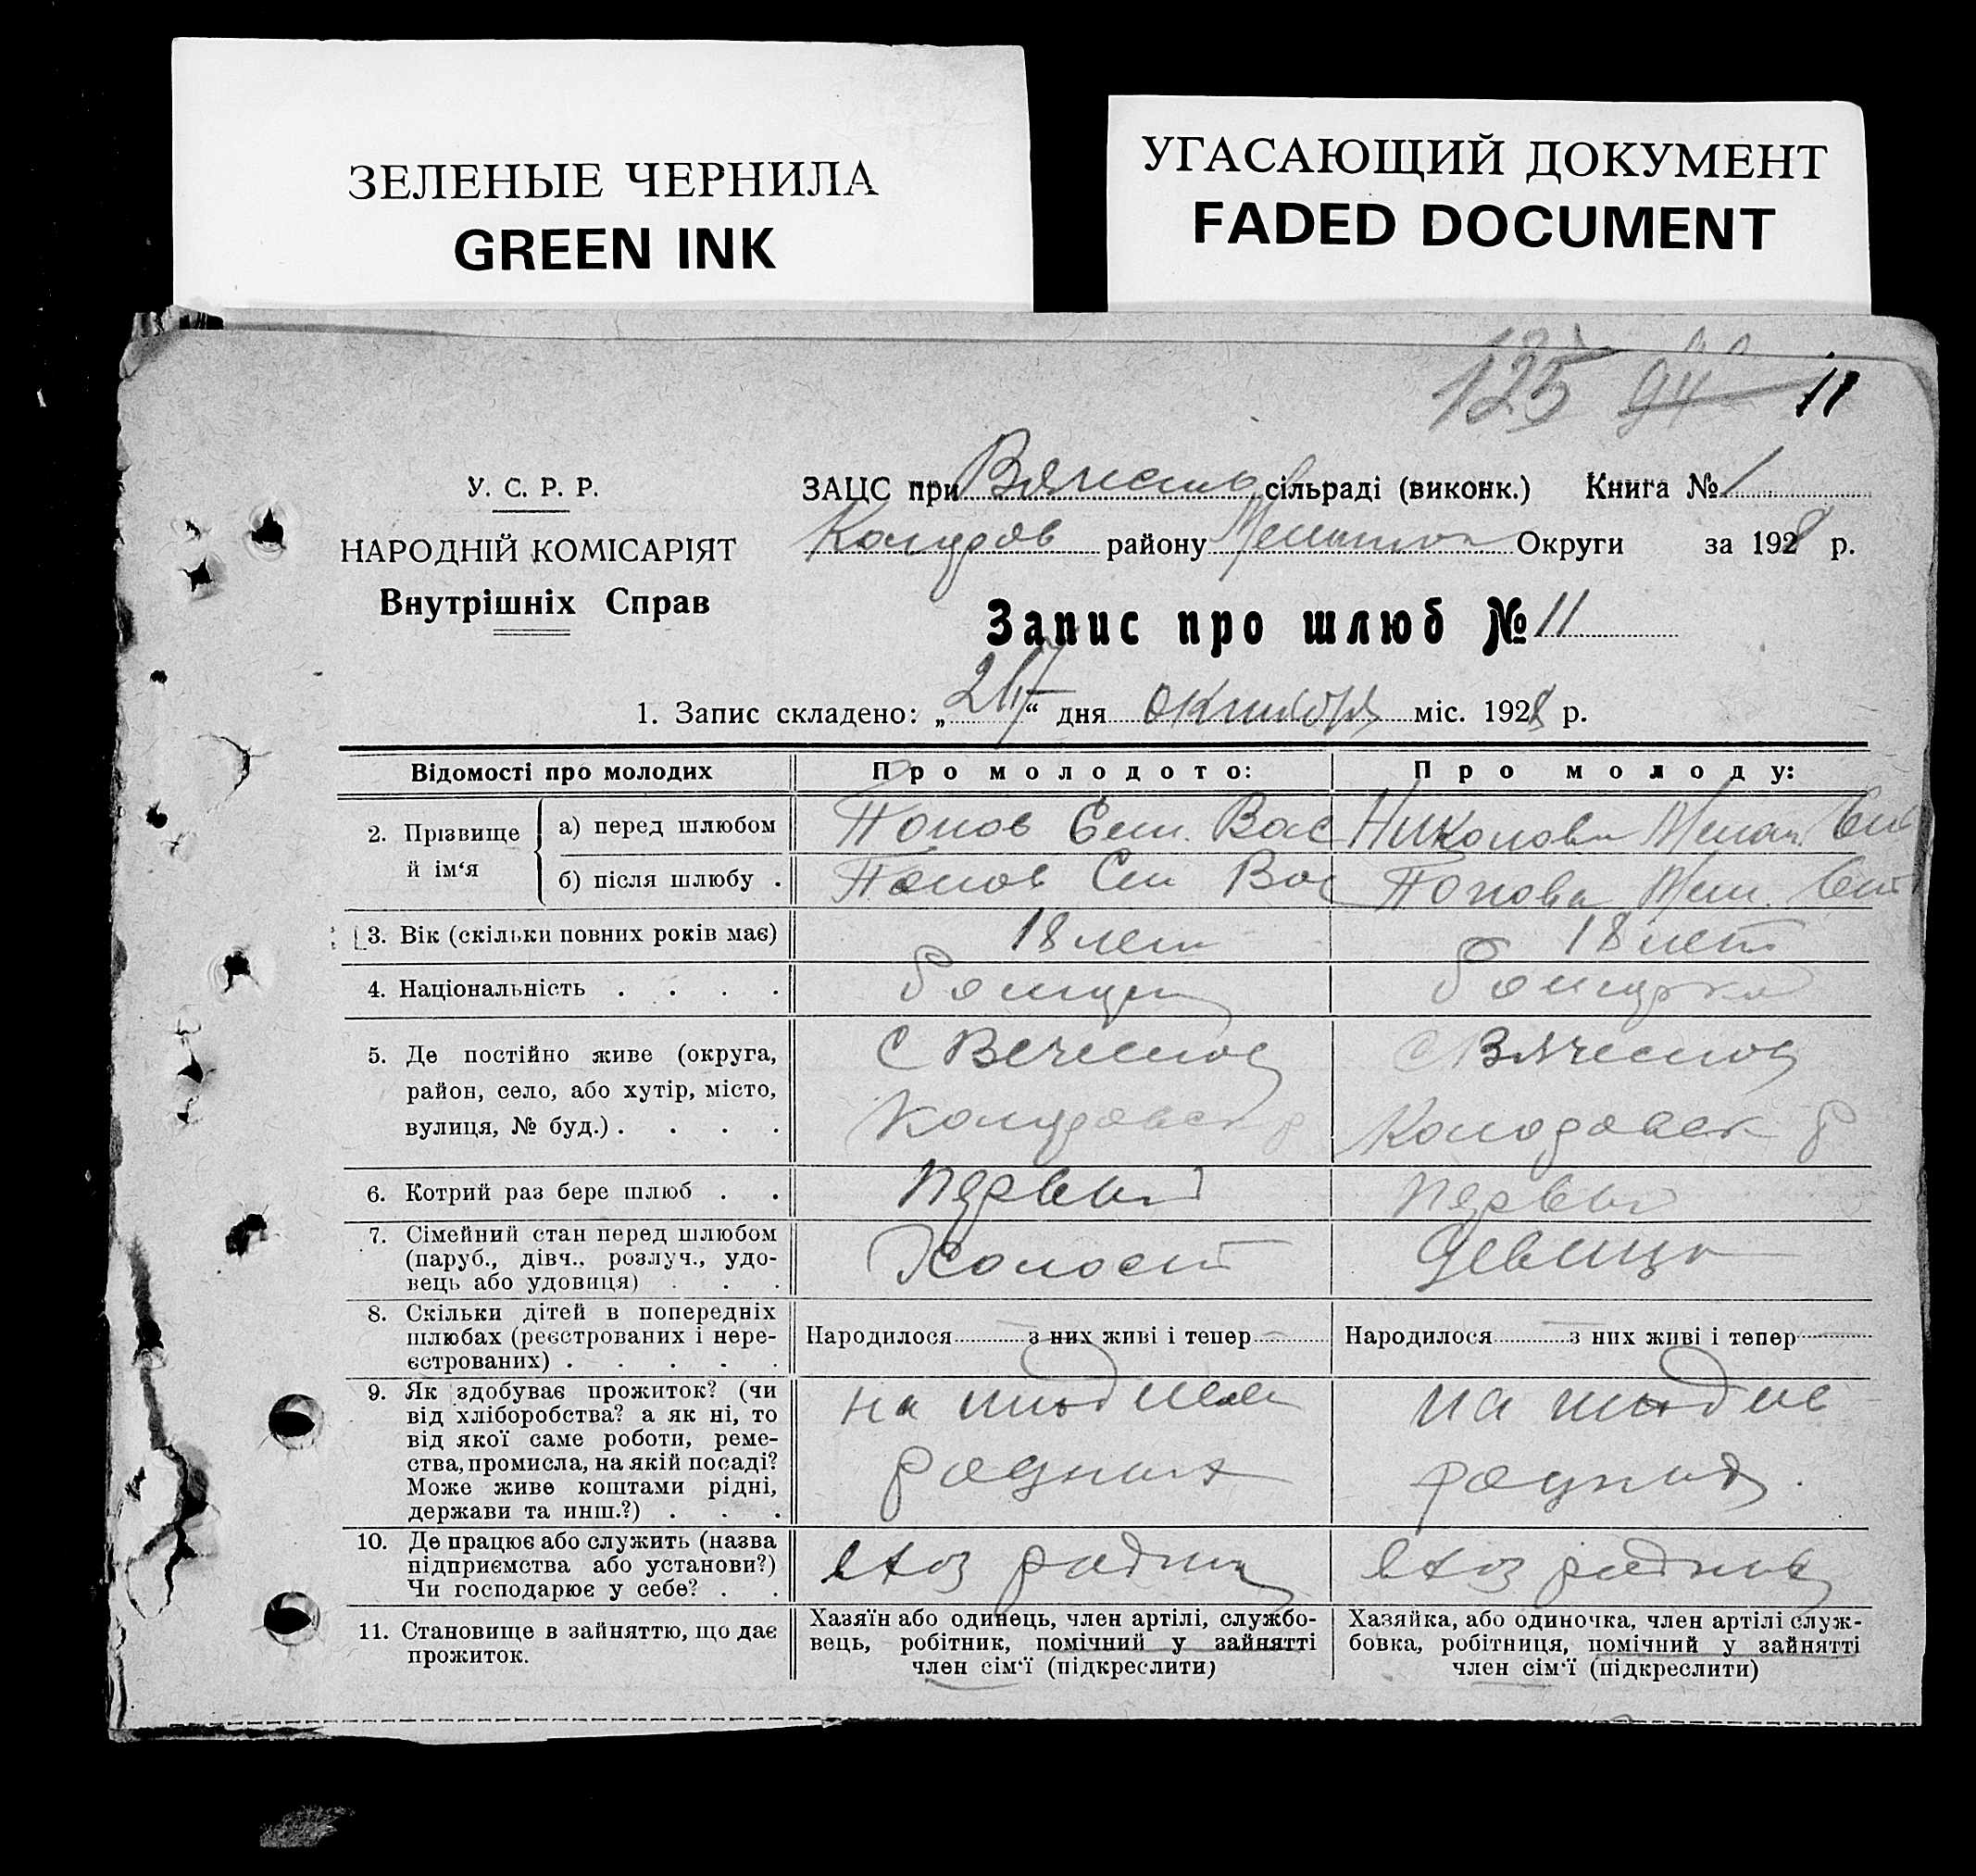 ЗЕЛЕНЫЕ ЧЕРНИЛА
GREEN INK
УГАСАЮЩИЙ ДОКУМЕНТ
FADED DOCUMENT
125 94 11
У. С. Р. Р.
НАРОДНІЙ КОМІСАРІЯТ
Внутрішніх Справ
ЗАЦС при сільраді (виконк.) Книга № 1
району Округи за 1928 р.
Запис про шлюб № 11
1. Запис складено: „ “ дня октября міс. 1928 р.
Відомості про молодих
Про молодого:
Про молоду:
2. Прізвище й ім‘я
а) перед шлюбом
Попов Сем. Вас
Николова
б) після шлюбу .
Попов Сем Вас
Попова
3. Вік (скільки повних років має)
18 лет
18 лет
4. Національність . . . .
5. Де постійно живе (округа,
район, село, або хутір, місто,
вулиця, № буд.) . . . .
С
С
6. Котрий раз бере шлюб . .
Первый
Первый
7. Сімейний стан перед шлюбом
(паруб., дівч., розлуч., удо-
вець або удовиця) . . .
Холост
Девица
8. Скільки дітей в попередніх
шлюбах (реєстрованих і нере-
єстрованих) . . . . .
Народилося з них живі і тепер
Народилося з них живі і тепер
9. Як здобуває прожиток? (чи
від хліборобства? а як ні, то
від якої саме роботи, реме-
ства, промисла, на якій посаді?
Може живе коштами рідні,
держави та инш.?) . . .
на
родных
на
родных
10. Де працює або служить (назва
підприємства або установи?)
Чи господарює у себе? . .
11. Становище в зайняттю, що дає
прожиток.
Хазяїн або одинець, член артілі, службо-
вець, робітник, помічний у зайнятті
член сім‘ї (підкреслити)
Хазяйка, або одиночка, член артілі служ-
бовка, робітниця, помічний у зайнятті
член сім‘ї (підкреслити)